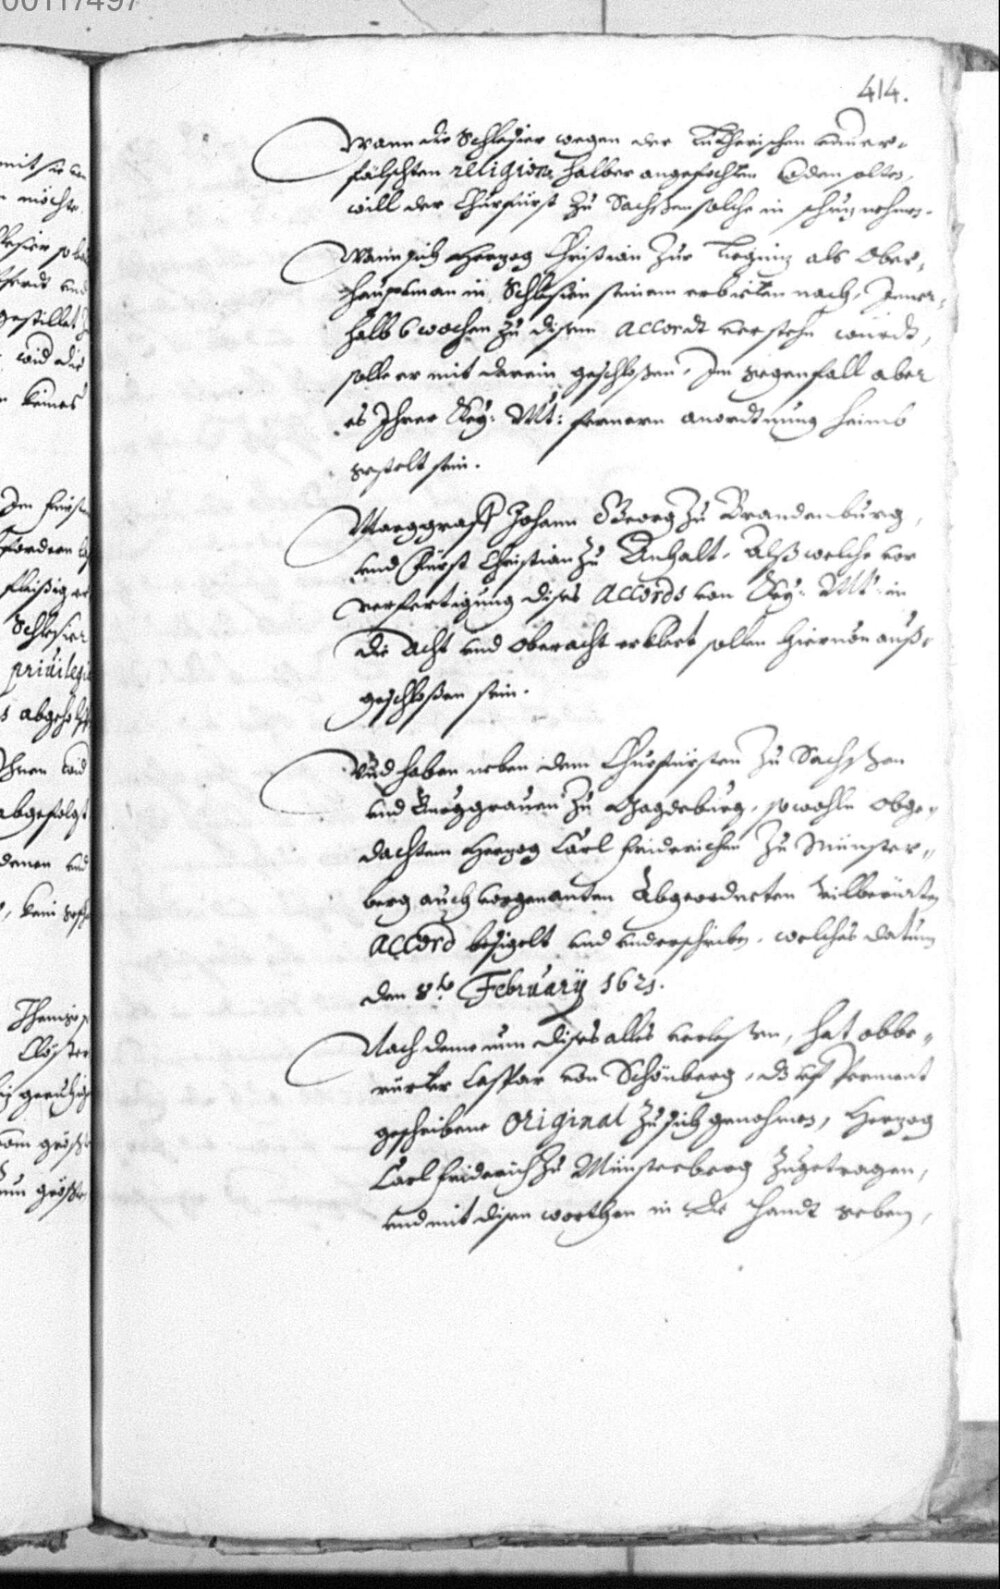 00117497
414.
Wann die Schlesier wegen der Lutherischen unver-
fälschten religion halber angefochten werden solten,
will der Churfürst zu Sachßen solche in schuz nehmen.
Wann sich Herzog Christian zur Lignitz als Ober-
haupman in Schlesien seinem erbieten nach, Inner-
halb 6 wochen zu disem Accordt verstehn würdt,
solle er mit darein geschloßen, Im gegenfall aber
es Ihrer Key: Mt: fernern anordtnung heimb
gestelt sein.
Marggraff Johann Georg zu Brandenburg,
und Fürst Christian zu Anhalt, Alß welche vor
verfertigung dises Accords von Key: Mt: in
die Acht und Oberacht erklert sollen hiervon auß-
geschloßen sein.
Und haben neben dem Churfürsten zu Sachßen
und Burggrauen zu Magdeburg, sowohln obge-
dachtem Herzog Carl Friderichen zu Münster-
berg auch vorgenanten Abgeordneten vilberürten
Accord besigelt und underschriben, welches datum
den 8t. February 1621.
Nach deme nun dises alles verlesen, hat obbe-
rürter Caspar von Schönberg, dz uf Perment
geschribene Original zu sich genohmen, Herzog
Carl Friderich zu Münsterberg zugetragen,
und mit disen worthen in die Handt geben,